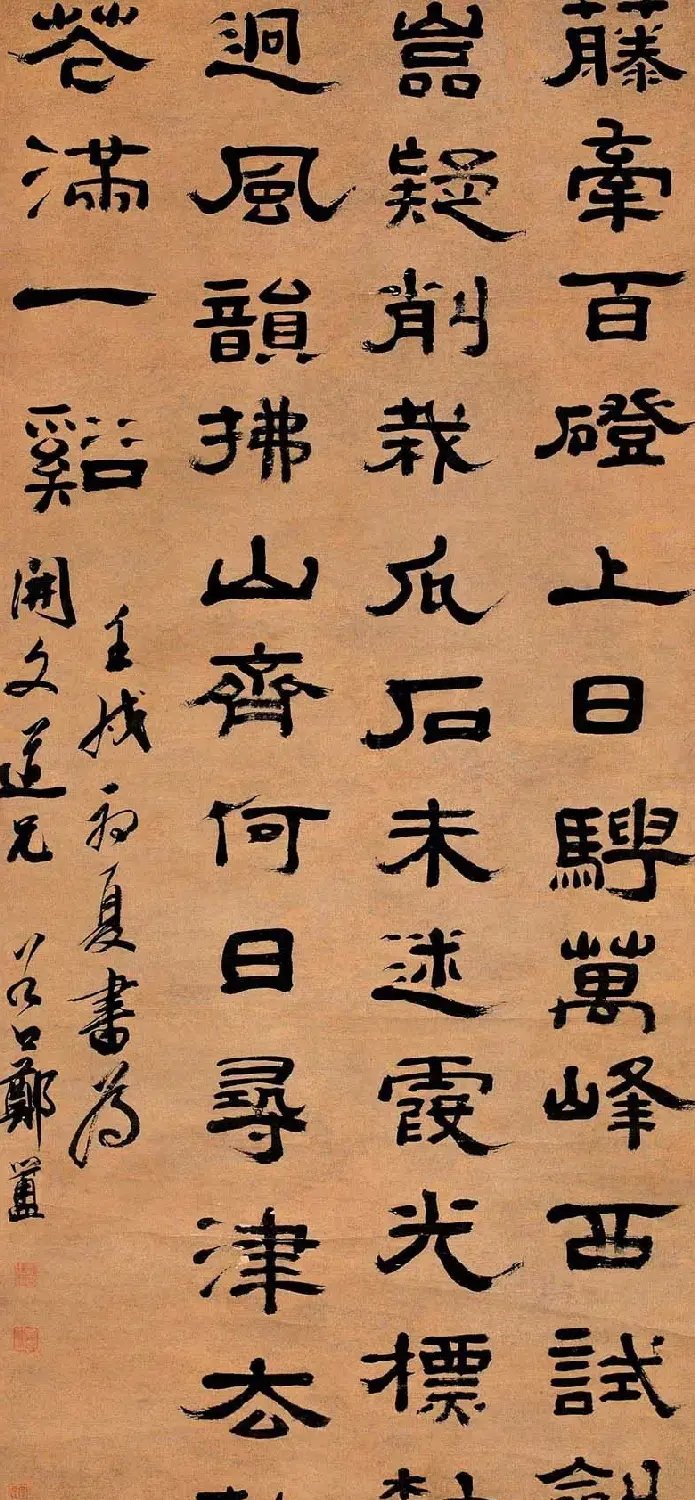 藤牽百磴上日騁萬峰西試劍
嵓疑削栽瓜石未迷霞光標
迥風韻拂山齊何日尋津去
花滿一谿
壬戌初夏書為
開文道兄 谷口鄭簠